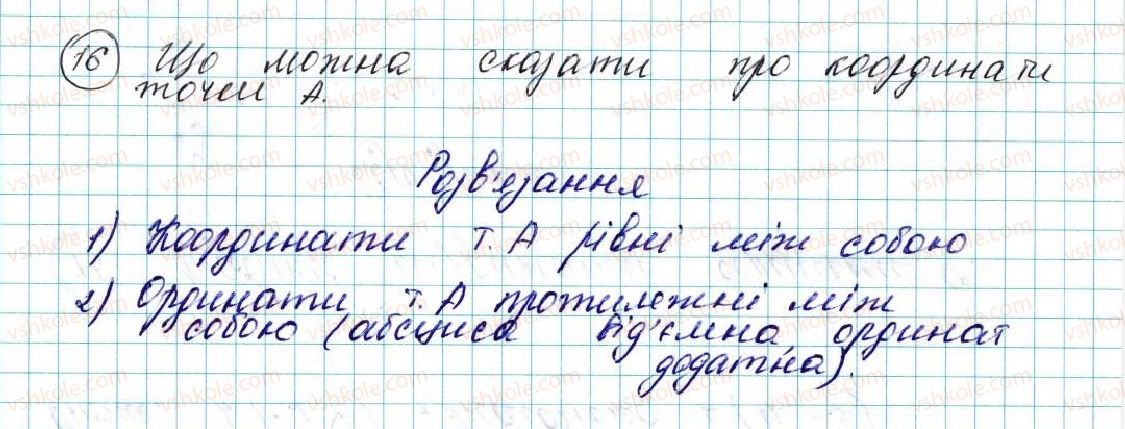 16 Що можна сказати про координати
точки А.
Розв'язання
1) Координати т. А рівні між собою
2) Ординати т. А протилежні між
собою (абсциса від'ємна, ординат
додатна).